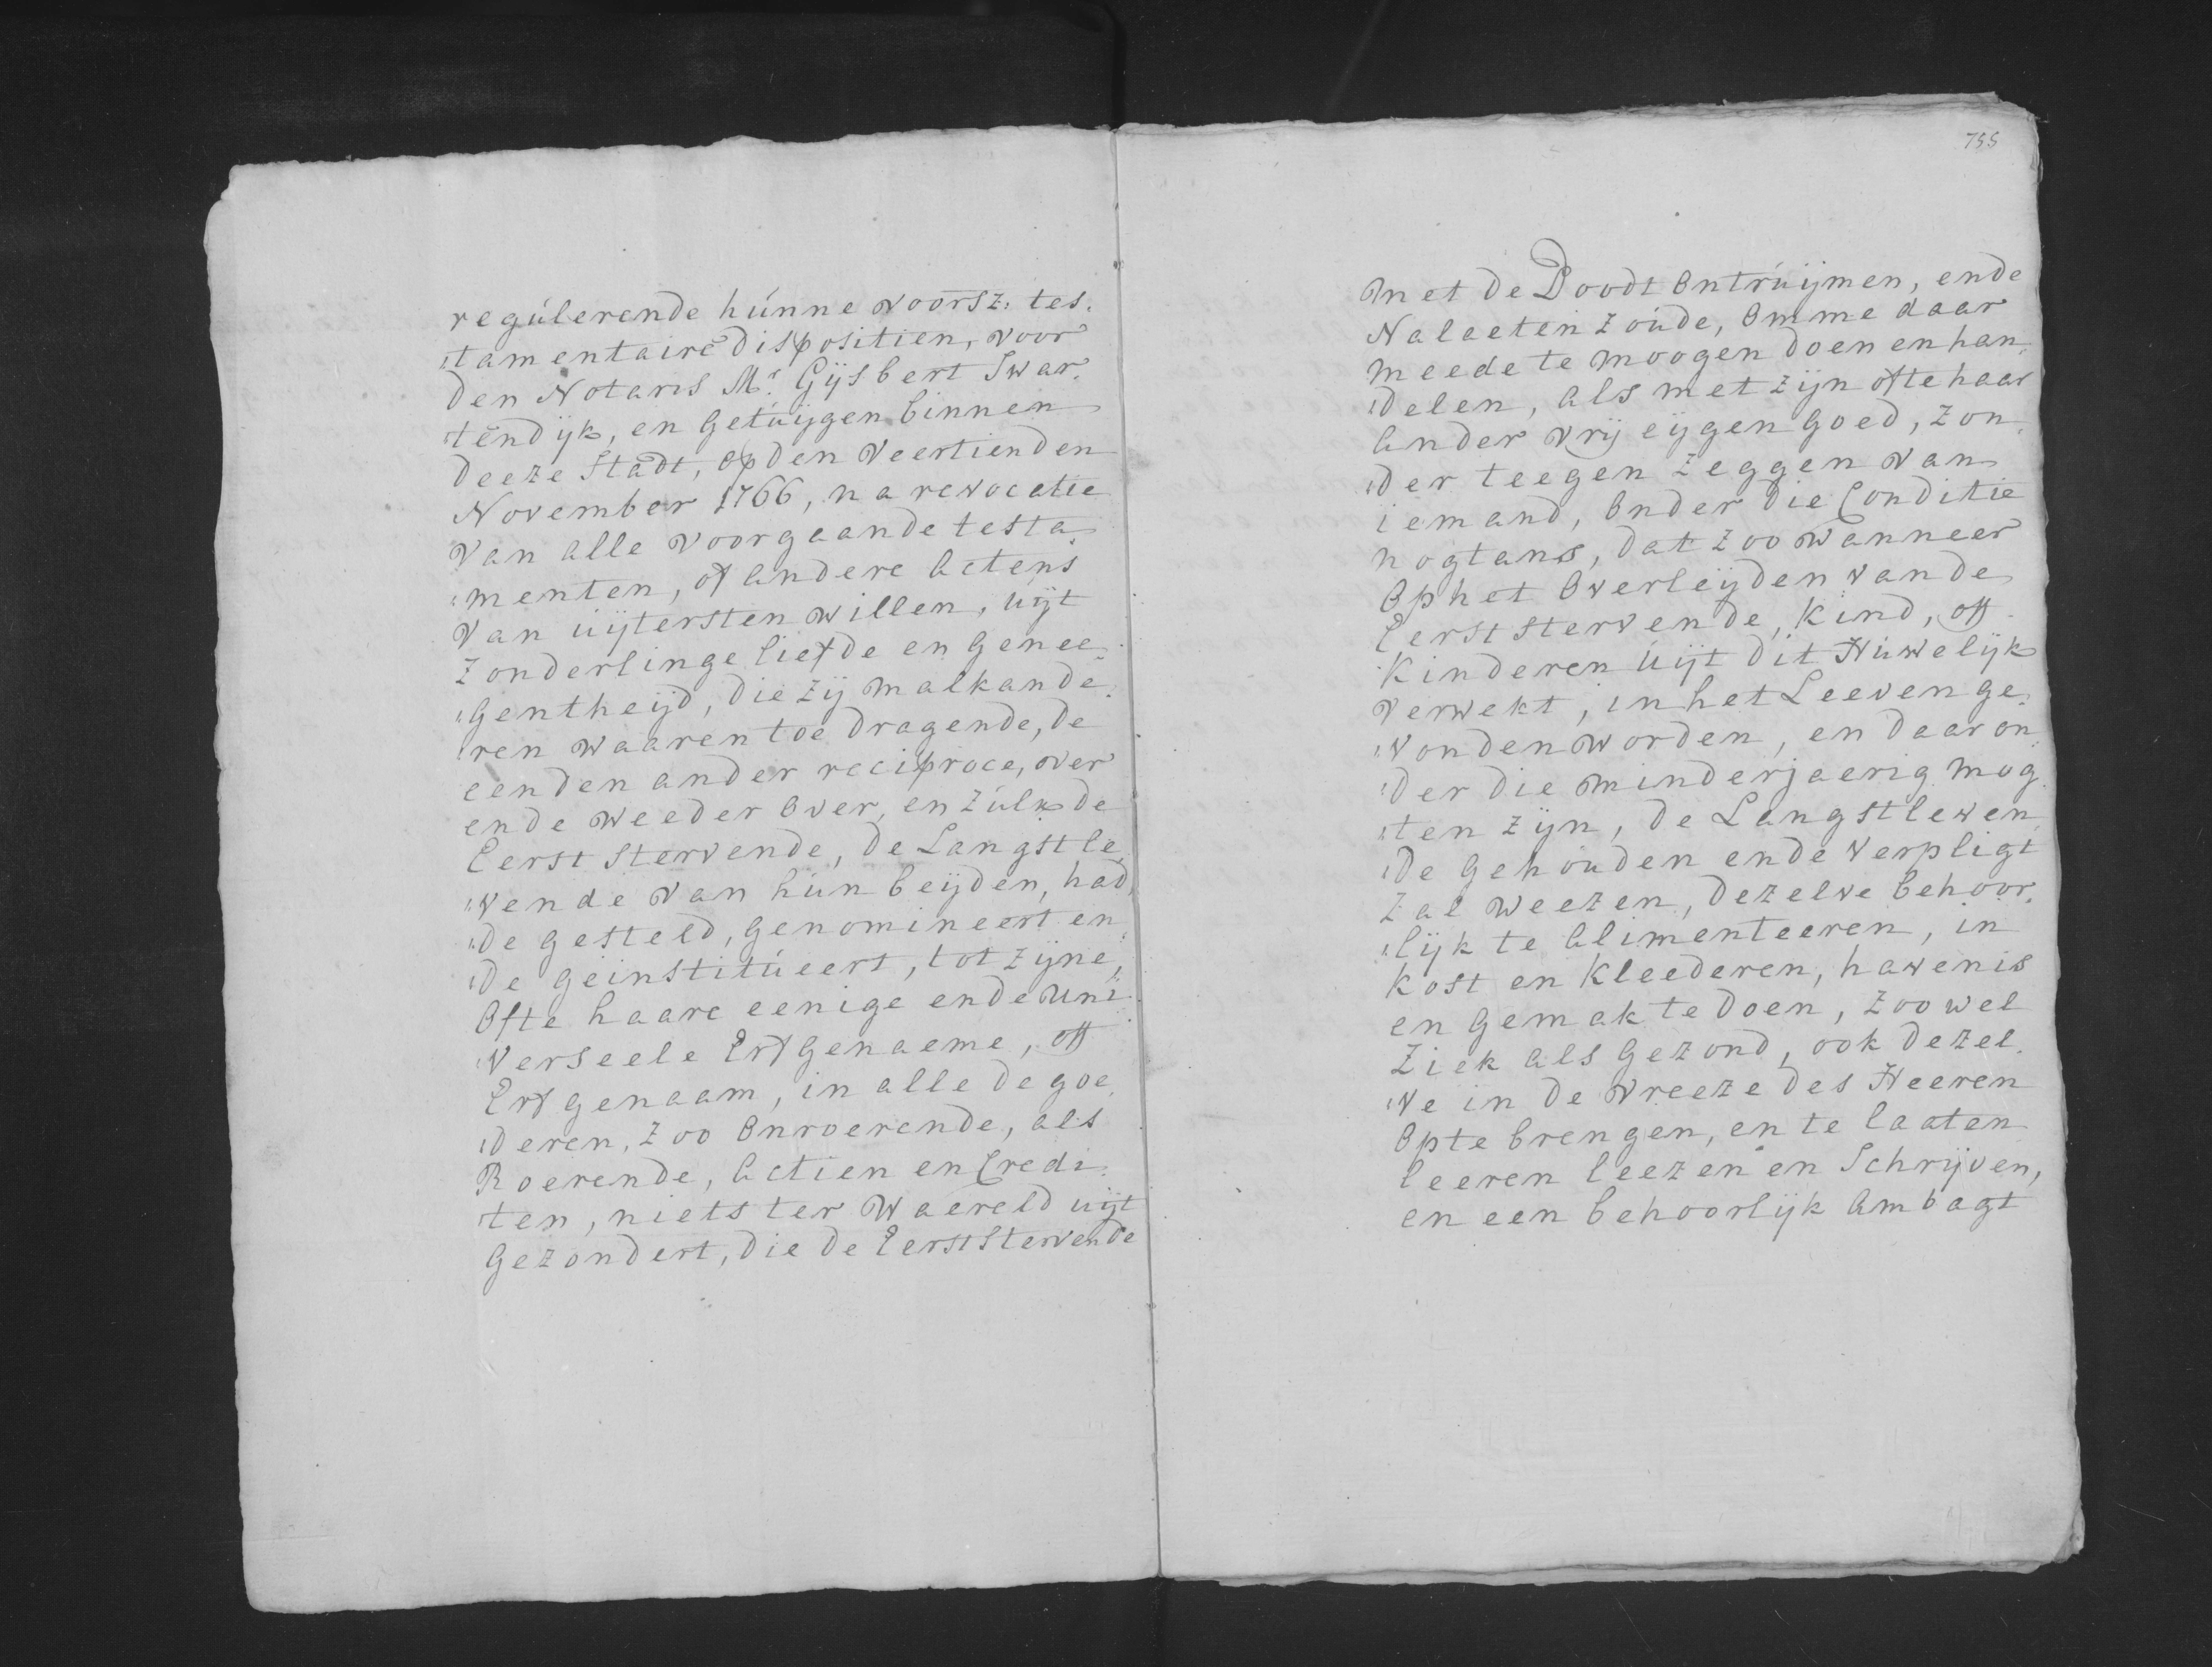 regúlerende húnne voorsz: tes„
„tamentaire dispositien, voor
den Notaris Mr. Gijsbert Swar„
„tendijk, en Getúijgen binnen
deeze Stadt, op den veertienden
November 1766, na revocatie
van alle voorgaande testa„
„menten, of andere actens
van uijtersten willen, uijt
zonderlinge liefde en genee„
„gentheijd, die zij malkande„
„ren waaren toe dragende, de
een den ander reciproce, over
ende weeder over, en zúlk de
Eerst stervende, de Langstle„
„vende van hún beijden, had„
„de gesteld, genomineert en„
„de geinstitúeert, tot zijne,
ofte haare eenige ende uni„
„verseele Erfgenaeme, off
Erfgenaam, in alle de goe„
„deren, zoo onroerende, als
Roerende, actien en Credi„
„ten, niets ter waereld uijt
gezondert, die de Eerststervende
755
met de Doodt ontrúijmen, ende
Nalaeten zoúde, omme daar
meede te moogen doen en han„
„delen, als met zijn ofte haar
ander vrij eijgen goed, zon„
„der teegen zeggen van
iemand, onder die Conditie
nogtans, dat zoo wanneer
op het overleijden van de
Eerst stervende, kind, off
kinderen úijt dit Húwelijk
verwekt, in het Leeven ge„
„vonden worden, en daar on„
„der die minderjaerig mog„
„ten zijn, de Langstleven„
„de gehouden ende verpligt
zal weezen, dezelve behoor„
„lijk te alimenteeren, in
kost en kleederen, havenis
en gemak te doen, zoo wel
Ziek als gezond, ook dezel„
„ve in de vreeze des Heeren
op te brengen, en te laaten
leeren leezen en Schrijven,
en een behoorlijk ambagt